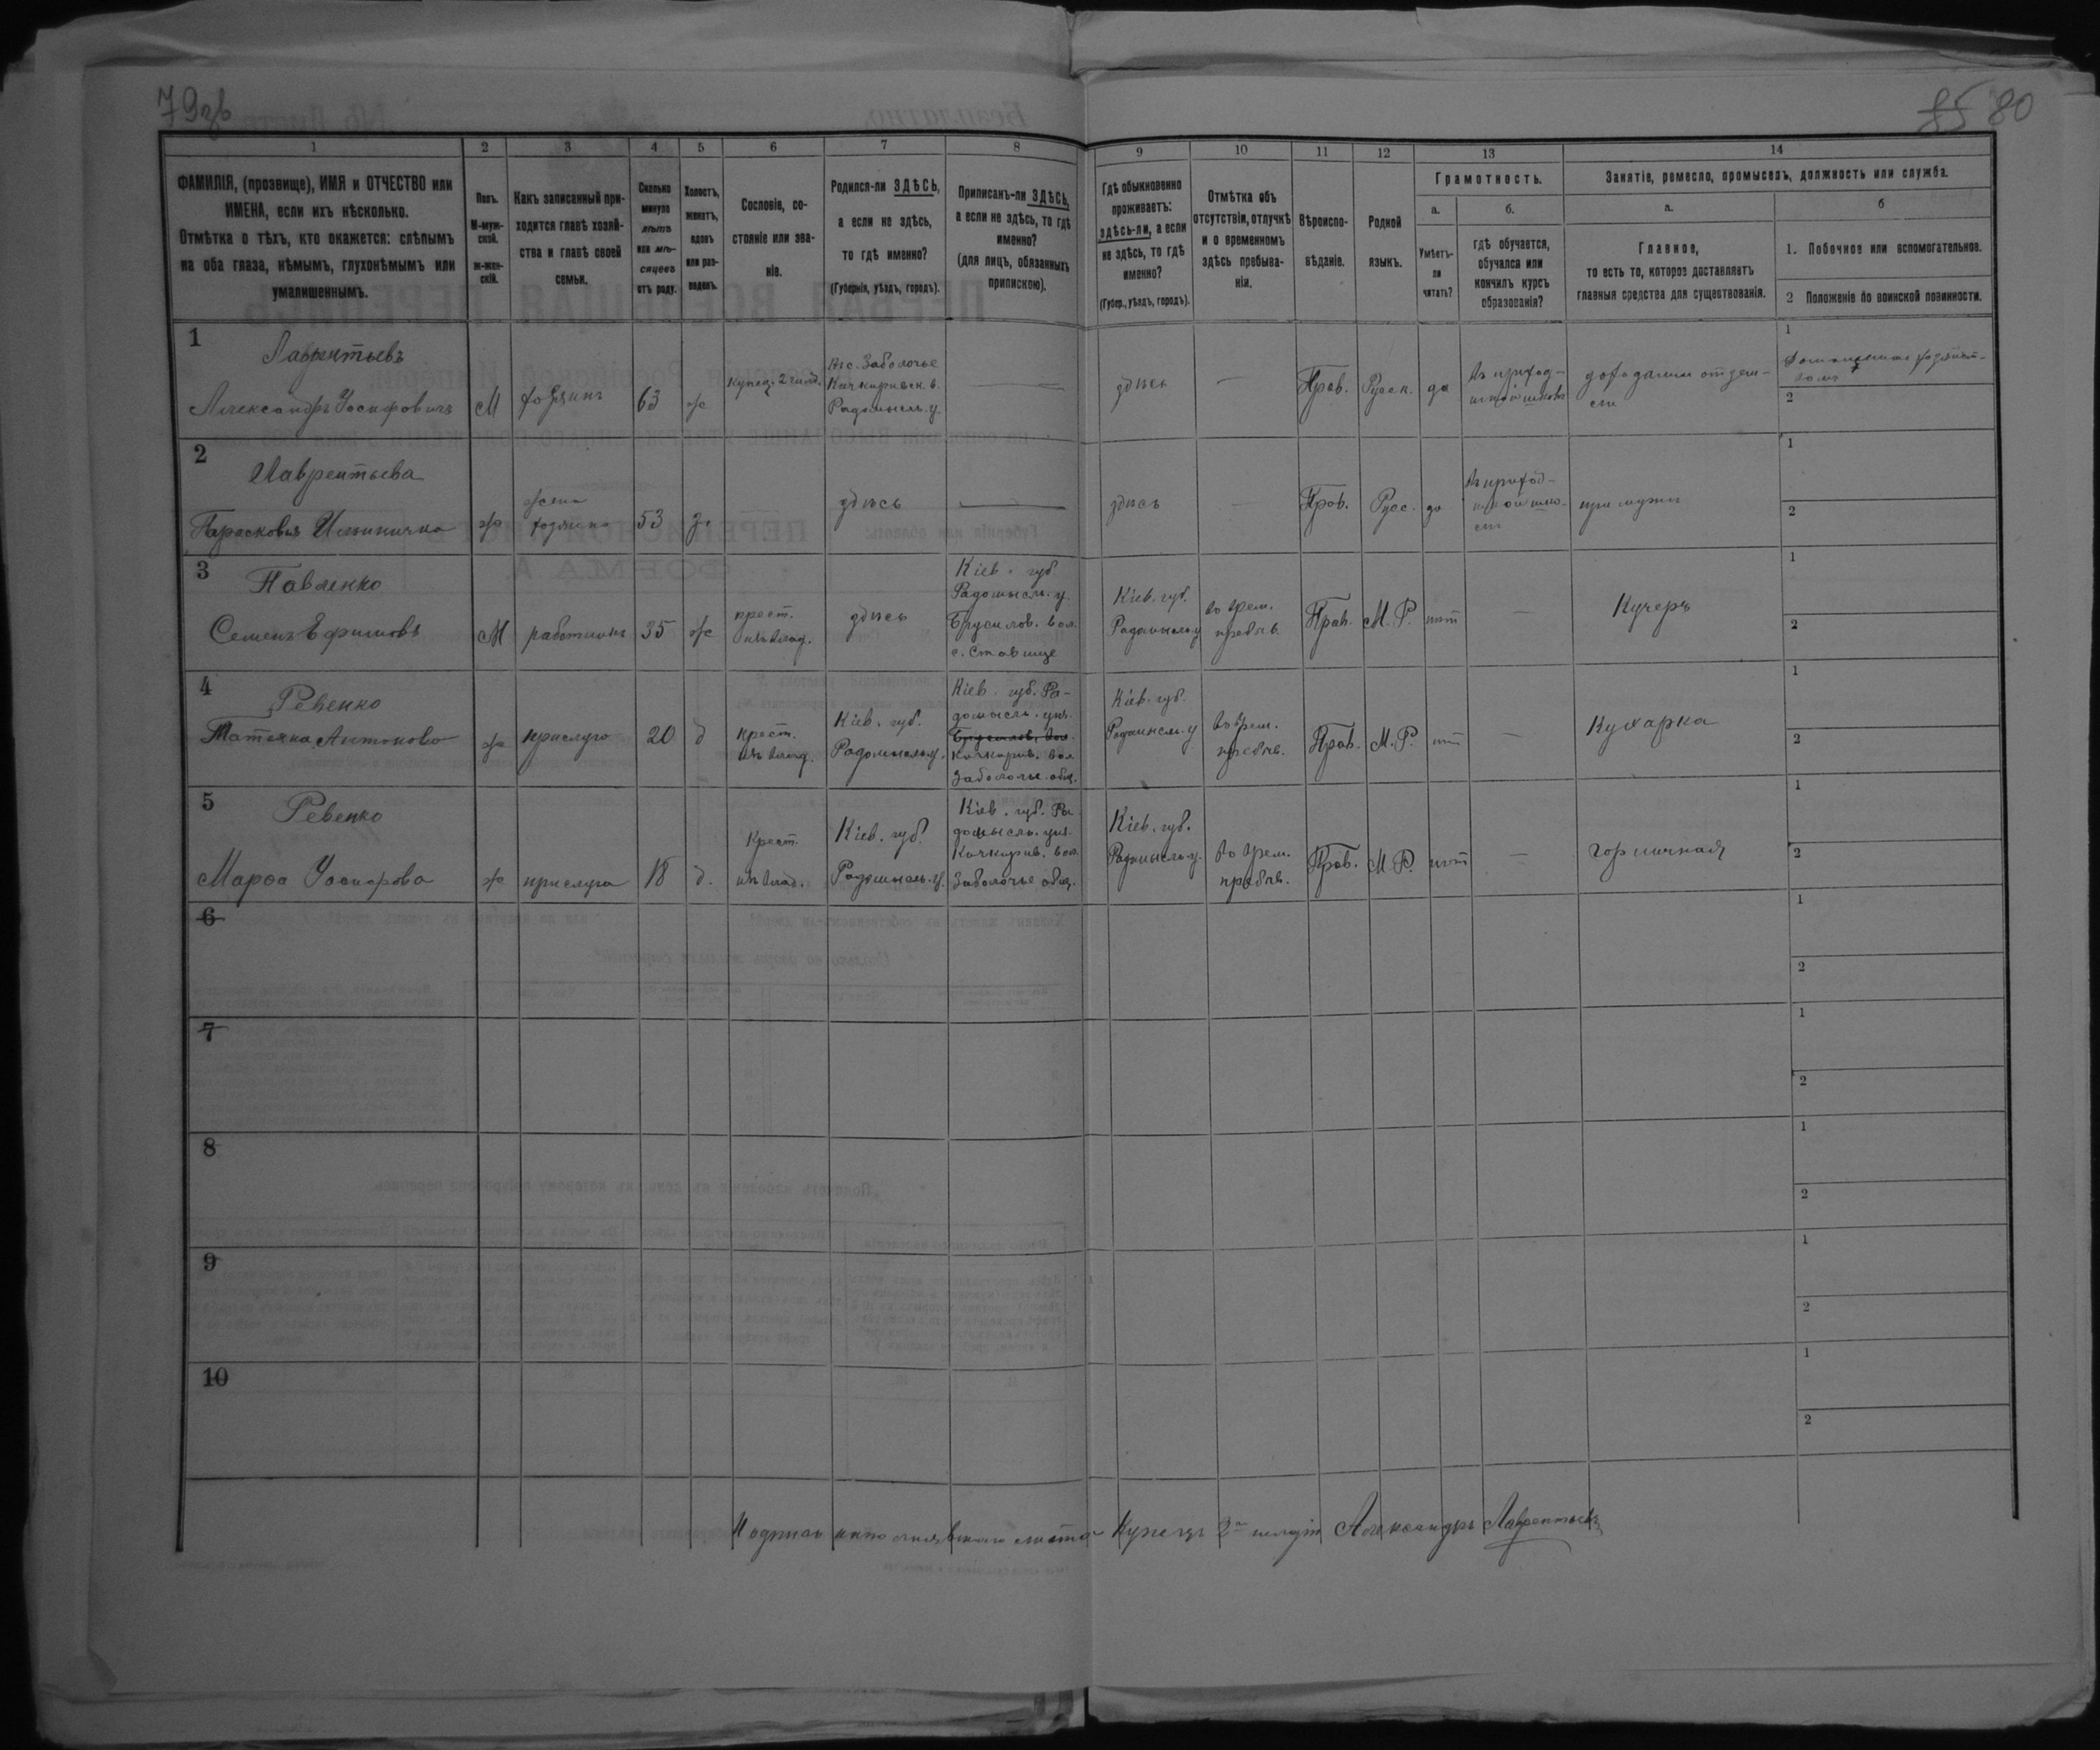 79об
85 80
1
2
3
4
5
6
7
8
9
10
11
12
13
14
ФАМИЛІЯ, (прозвище), ИМЯ и ОТЧЕСТВО или
ИМЕНА, если ихъ нѣсколько.
Отмѣтка о тѣхъ, кто окажется: слѣпымъ
на оба глаза, нѣмымъ, глухонѣмымъ или
умалишеннымъ.
Полъ.
М-муж-
ской.
ж-жен-
скій.
Какъ записанный при-
ходится главѣ хозяй-
ства и главѣ своей
семьи.
Сколько
минуло
лѣтъ
или мѣ-
сяцевъ
отъ роду.
Холостъ,
женатъ,
вдовъ
или раз-
веденъ.
Сословіе, со-
стояніе или зва-
ніе.
Родился-ли ЗДѢСЬ,
а если не здѣсь,
то гдѣ именно?
(Губернія, уѣздъ, городъ).
Приписанъ-ли ЗДѢСЬ,
а если не здѣсь, то гдѣ
именно?
(для лицъ, обязанныхъ
припискою).
Гдѣ обыкновенно
проживаетъ:
здѣсь-ли, а если
не здѣсь, то гдѣ
именно?
(Губер., уѣздъ, городъ).
Отмѣтка объ
отсутствіи, отлучкѣ
и о временномъ
здѣсь пребыва-
ніи.
Вѣроиспо-
вѣданіе.
Родной
языкъ.
Грамотность.
а.
б.
Умѣетъ-
ли
читать?
гдѣ обучается,
обучался или
кончилъ курсъ
образованія?
Занятіе, ремесло, промыселъ, должность или служба.
а.
б
Главное,
то есть то, которое доставляетъ
главныя средства для существованія.
1. Побочное или вспомогательное.
2 Положеніе по воинской повинности.
1
Лаврентьевъ
Александръ Іосифовичъ
М
хозяинъ
63
ж
купец. 2 гильд.
Въ с. Заболочье
Кичкировск. в.
Радомысль. у.
—
здѣсь
—
Прав.
Русск.
да
въ приход-
ской школѣ
доходами от зем-
ли
1
2
2
Лаврентьева
Парасковья Ильинична
ж
жена
хозяина
53
з.
здѣсь
—
здѣсь
Прав.
Русс.
да
въ приход-
ской шко-
лѣ
при мужѣ
1
2
3
Павленко
Семенъ Ефимовъ
М
работникъ
35
ж
крест.
изъ влад.
здѣсь
Кіев. губ.
Радомысль. у.
Брусилов. вол.
с. Ставище
Кіев. губ.
Радомысль. у
во врем.
пребыв.
Прав.
М. Р.
нѣт
—
Кучеръ
1
2
4
Ревенко
Татьяна Антонова
ж
прислуга
20
д
крест.
изъ влад.
Кіев. губ.
Радомысль. у.
Кіев. губ. Ра-
домысль. уѣз.
Брусилов. вол.
Кичкиров. вол.
Заболочье общ.
Кіев. губ.
Радомысль. у
во врем.
пребыв.
Прав.
М. Р.
нѣт
—
Кухарка
1
2
5
Ревенко
Марѳа Іосифова
ж
прислуга
18
д.
Крест.
изъ влад.
Кіев. губ.
Радомысль. у.
Кіев. губ. Ра-
домысль. уѣз.
Кичкиров. вол.
Заболочье общ.
Кіев. губ.
Радомысль. у.
во врем.
пребыв.
Прав.
М Р.
нѣт
—
горничная
1
2
6
1
2
7
1
2
8
1
2
9
1
2
10
1
2
Купецъ 2й гильдіи Александръ Лаврентьевъ